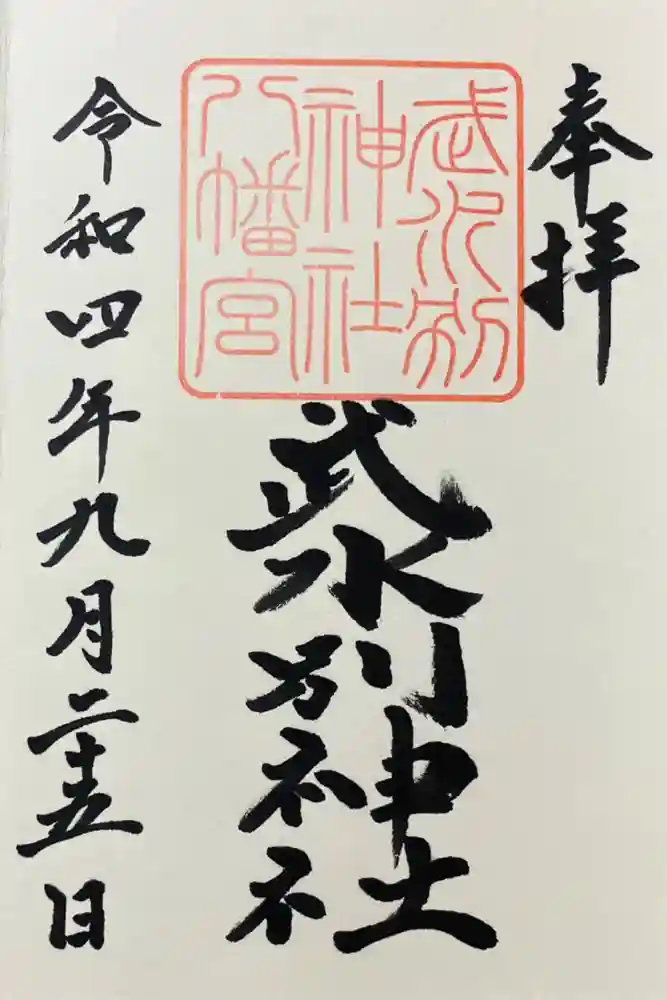 奉拝
武水別
神社
八幡宮
武水別神社
令和四年九月二十五日